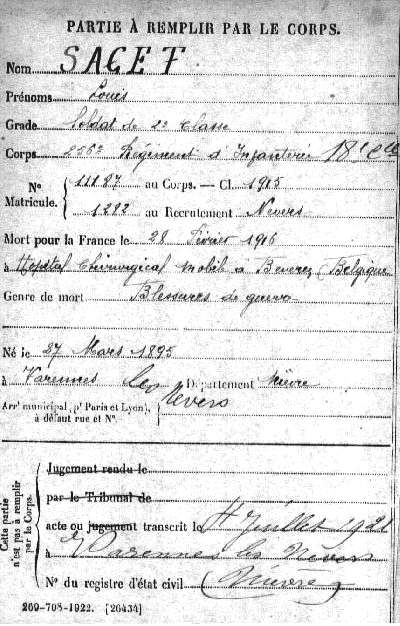 PARTIE À REMPLIR PAR LE CORPS.
Nom SACET
Prénoms Louis
Grade Soldat de 2e Classe
Corps 256e Régiment d'Infanterie 18e Cie
No Matricule. 11187 au Corps. — Cl. 1915
1292 au Recrutement Nevers
Mort pour la France le 28 Février 1916
à Hôpital Chirurgical mobile à Beveren (Belgique
Genre de mort Blessures de guerre
Né le 27 Mars 1895
à Varennes les Nevers Département Nièvre
Arrt municipal (pr Paris et Lyon), à défaut rue et No.
Cette partie n'est pas à remplir par le Corps.
Jugement rendu le
par le Tribunal de
acte ou jugement transcrit le 4 Juillet 1921
à Varennes les Nevers
No du registre d'état civil (Nièvre)
269-708-1922. [26434]